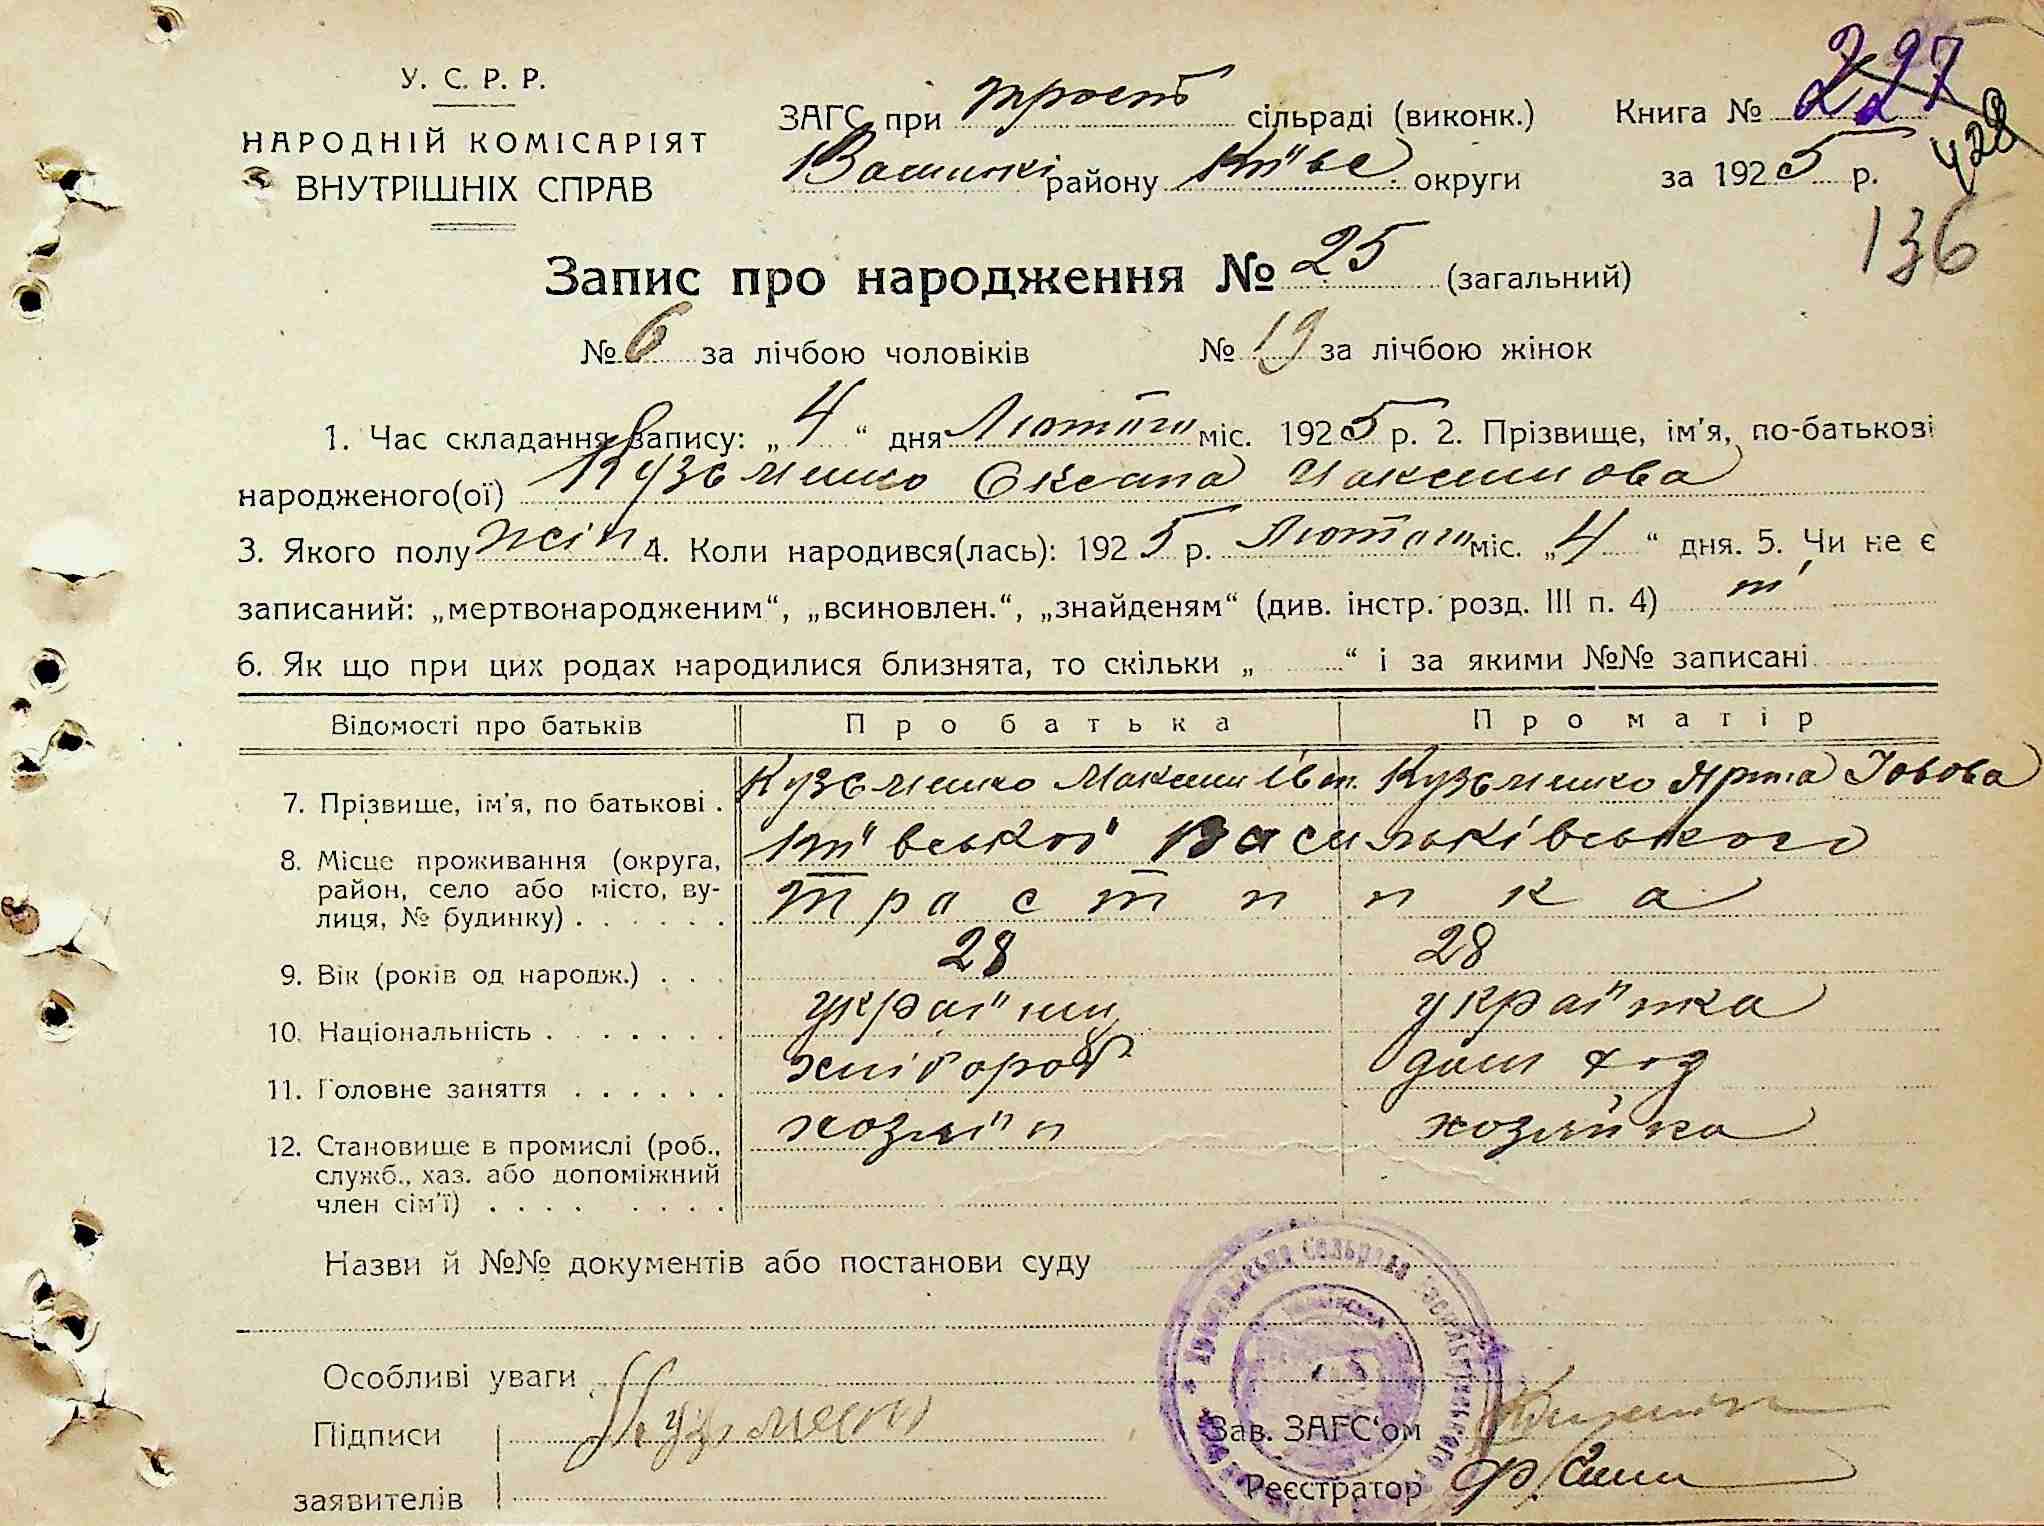 У. С. Р. Р.
НАРОДНІЙ КОМІСАРІЯТ
ВНУТРІШНІХ СПРАВ
ЗАГС при трост сільраді (виконк.)
район Київс округи
Книга № 227
428
за 1925 р.
136
Запис про народження № 25 (загальний)
№ 6 за лічбою чоловіків № 19 за лічбою жінок
1. Час складання запису: „4“ дня Лютого міс. 1925 р. 2. Прізвище, ім'я, по-батькові
народженого(ої) Кузьменко Оксана Максимова
3. Якого полу жін 4. Коли народився(лась): 1925 р. Лютого міс. „4“ дня. 5. Чи не є
записаний: „мертвонародженим“, „всиновлен.“, „знайденям“ (див. інстр. розд. III п. 4)
6. Як що при цих родах народилися близнята, то скільки „ “ і за якими №№ записані
Відомості про батьків Про батька Про матір
7. Прізвище, ім'я, по батькові . Кузьменко Максим Іван. Кузьменко Ярина Іовова
8. Місце проживання (округа, район, село або місто, вулиця, № будинку) . . . . . . Київської Васильківського
Тростинка
9. Вік (років од народж.) . . . 28 28
10. Національність . . . . . . . українц українка
11. Головне заняття . . . . . . хлібороб дом год
12. Становище в промислі (роб., служб., хаз. або допоміжний член сім'ї) . . . . . . . . хозяїн хозяйка
Назви й №№ документів або постанови суду
Особливі уваги
Підписи Кузьменко
заявителів
Зав. ЗАГС‘ом
Реєстратор